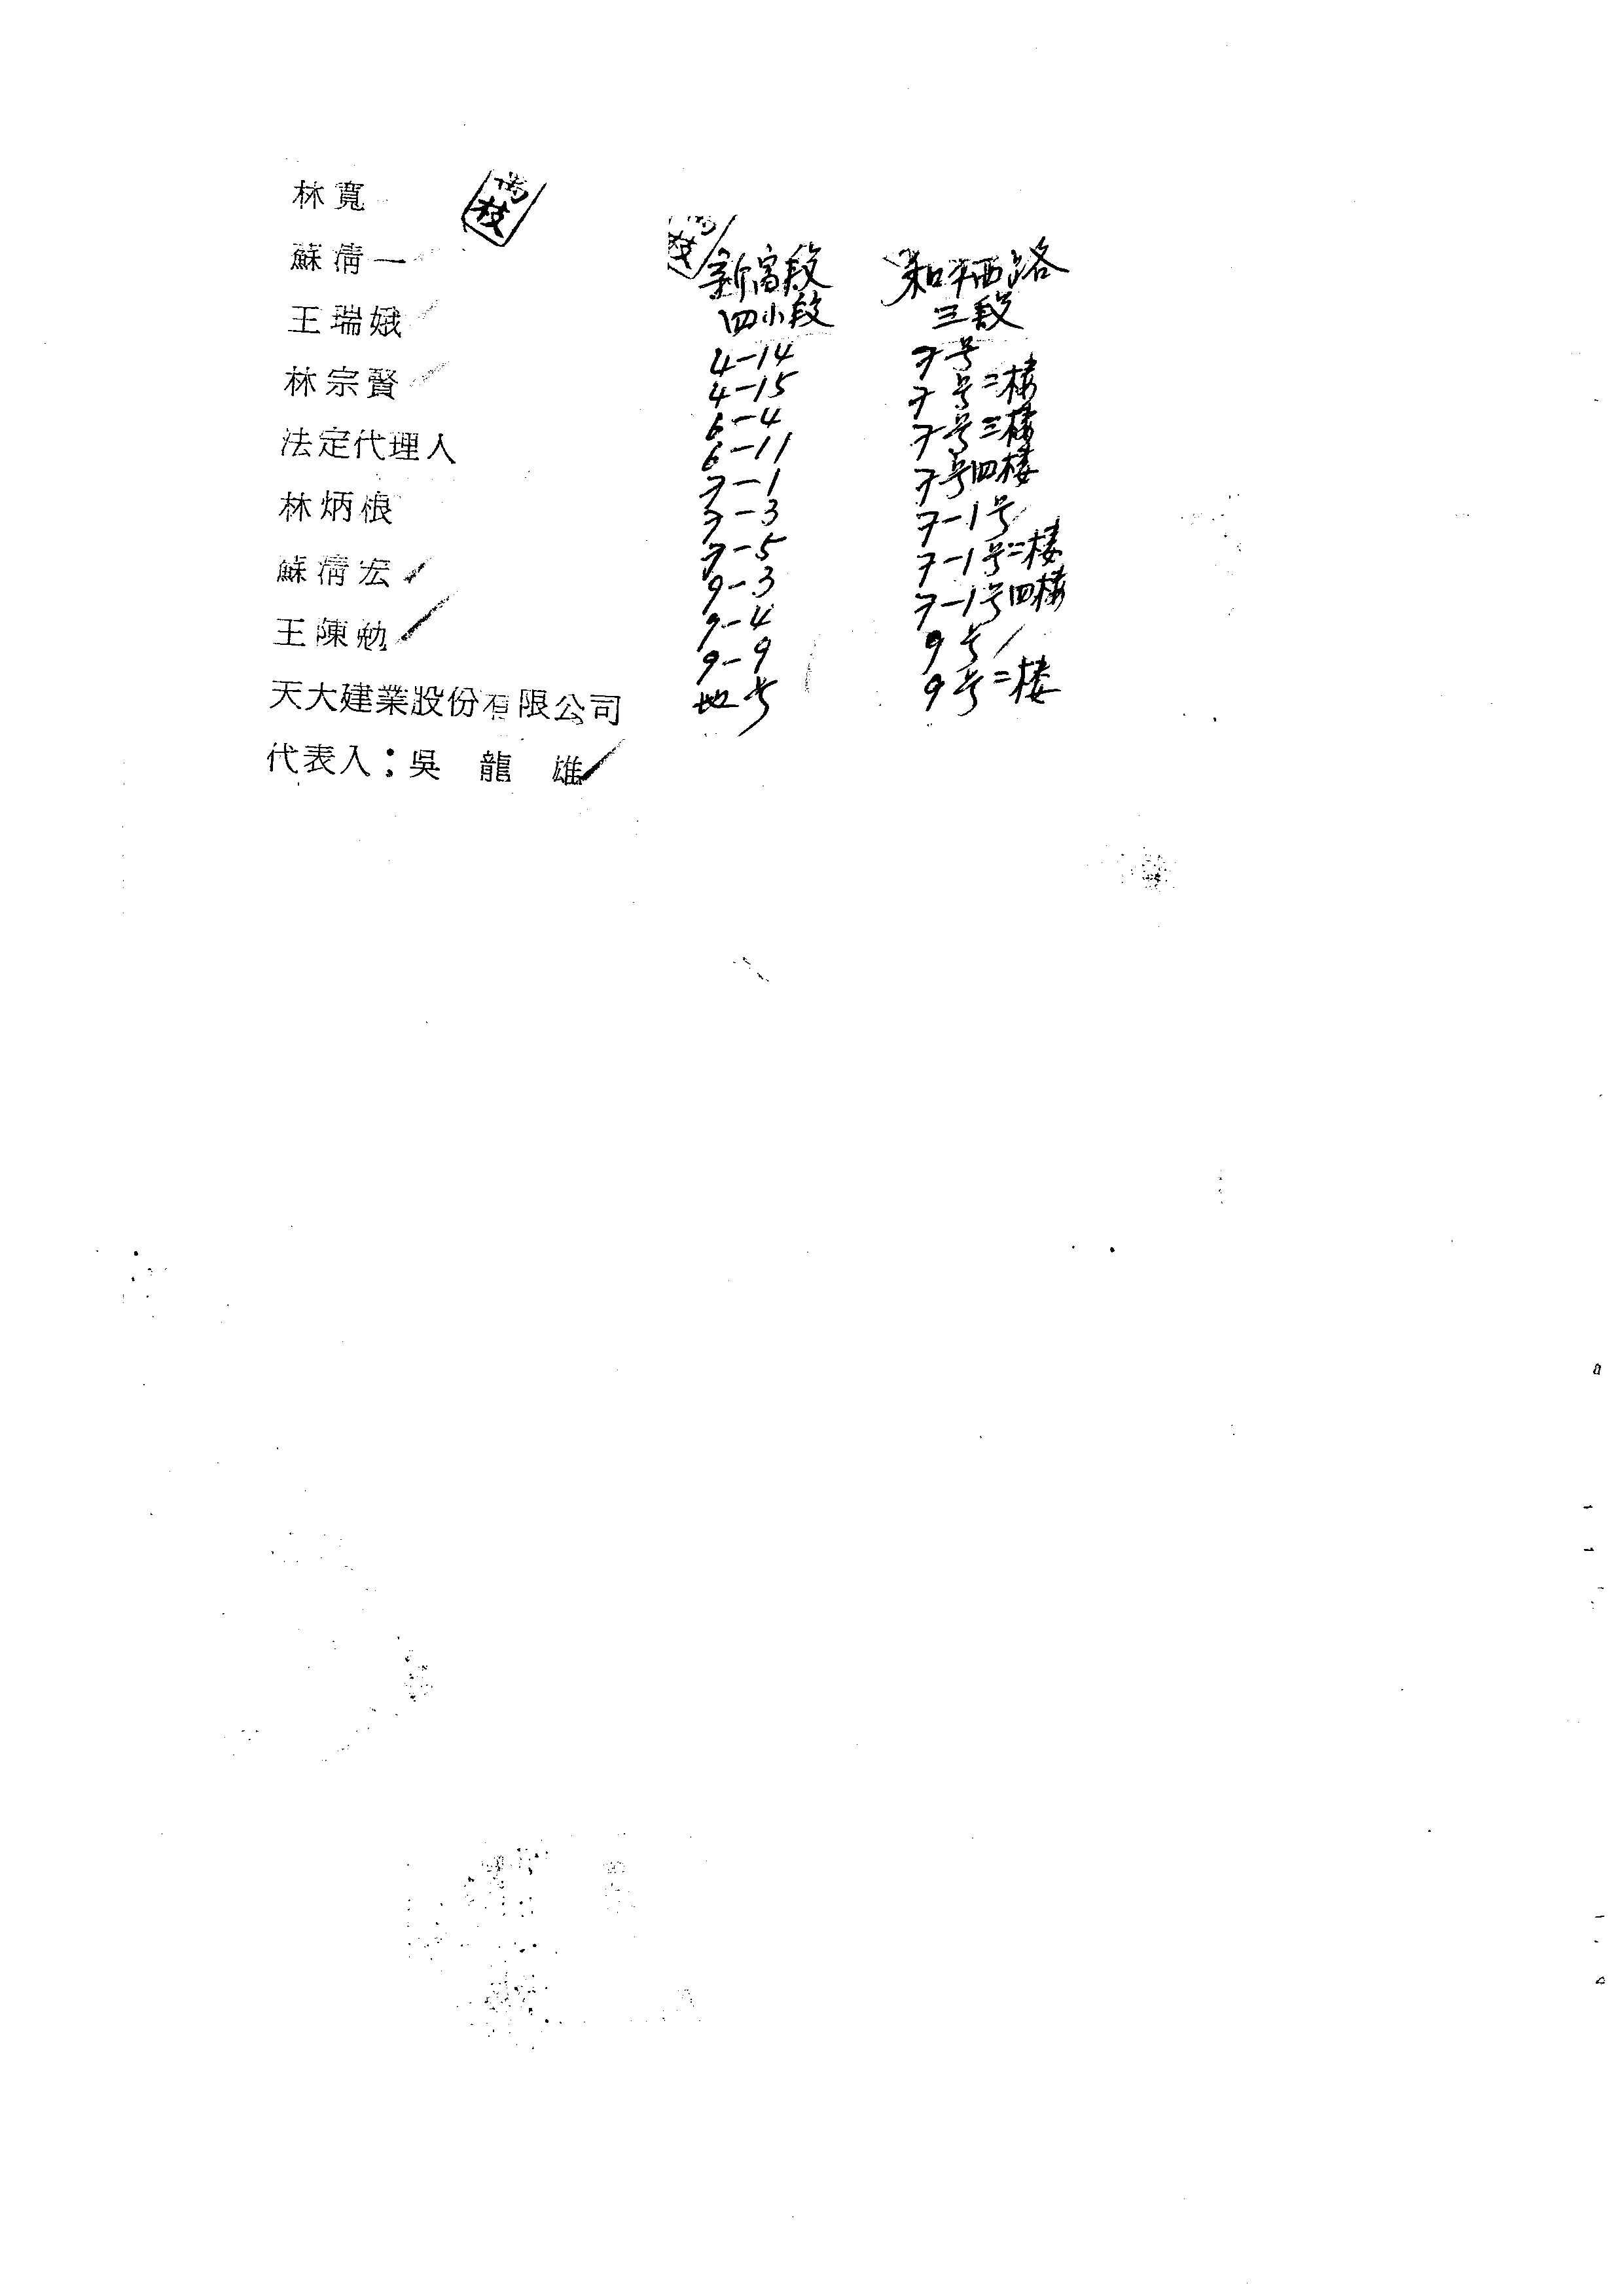 林寬
蘇清一
王瑞娥
林宗賢
法定代理人
林炳根
蘇清宏
王陳勉
天大建業股份有限公司
代表人：吳龍雄
枝
新富段
四小段
4-14
4-15
6-4
6-11
7-1
7-3
7-5
9-3
9-4
9-9
地号
和平西路
三段
7号
7号二楼
7号三楼
7号四楼
7-1号
7-1号二楼
7-1号四楼
9号
9号二楼